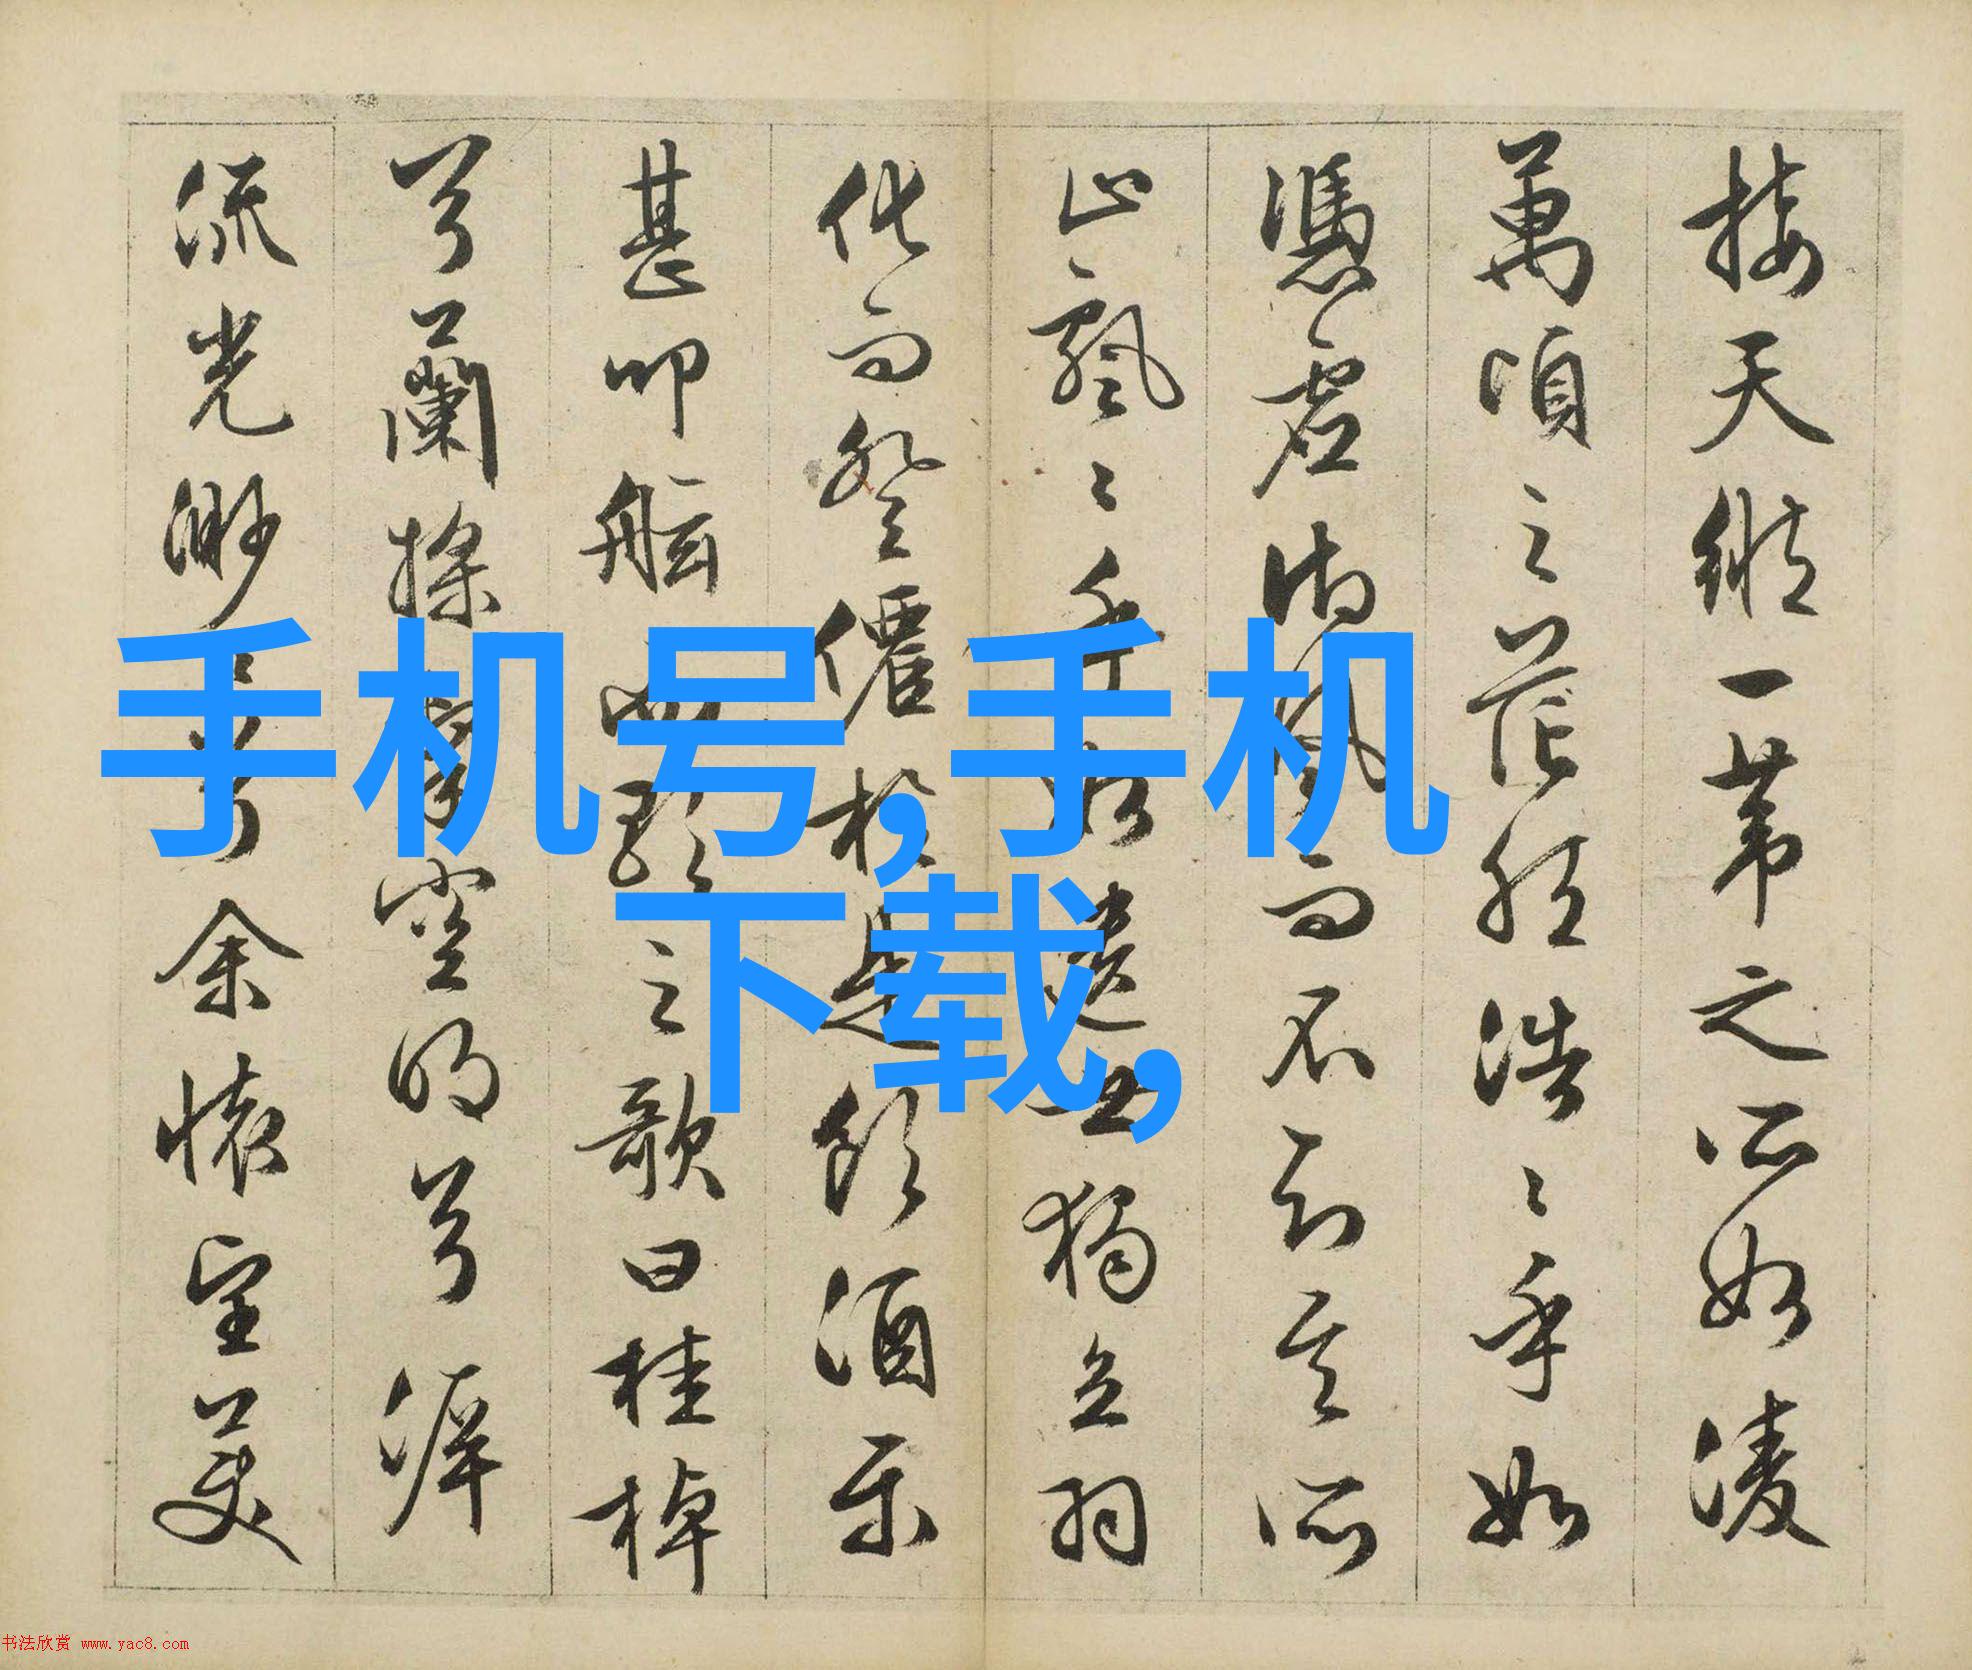 接天縱一葦之所如凌
萬頃之茫然浩〻乎如
憑虛御風而不知其所
止飄〻乎如遺世獨立羽
化而登僊於是飲酒樂
甚叩舷而歌之歌曰桂棹
兮蘭槳擊空明兮泝
流光渺〻兮余懷望美
手机号,手机
下载,
书法欣赏 www.yac8.com